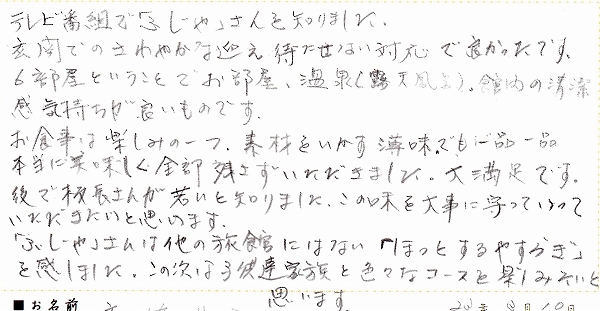 テレビ番組で「ふじや」さんを知りました。
玄関でのさわやかな迎え待たせない対応で良かったです。
6部屋ということでお部屋、温泉(露天風呂)、館内の清潔
感気持ちが良いものです。
お食事は楽しみの一つ、素材をいかす薄味でも一品一品
本当に美味しく全部残さずいただきました。大満足です。
後で板長さんが若いと知りました。この味を大事に守っていって
いただきたいと思います。
「ふじや」さんは他の旅館にはない「ほっとするやすらぎ」
を感じました。この次は子供達家族と色々なコースを楽しみたいと
思います。
■お名前 年 月10日